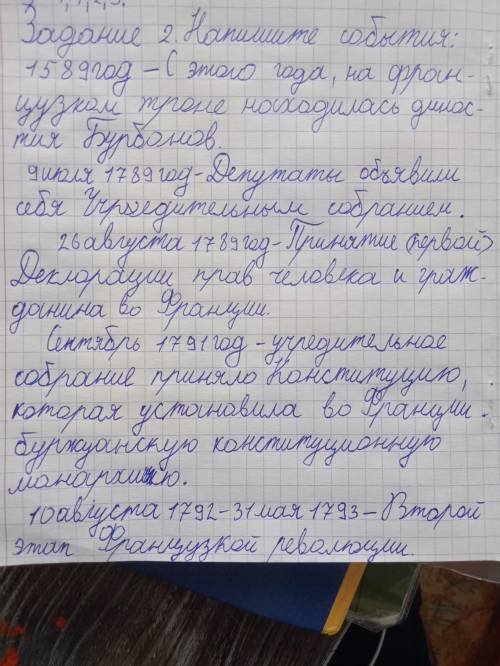 Задание 2. Напишите события:
1589год - С этого года, на фран-
цузком троне находилась динас-
тия Бурбонов.
9июля 1789год-Депутаты объявили
себя Учредительным собранием.
26августа 1789год-Принятие (первой)
Декларации прав человека и граж-
данина во Франции.
Сентябрь 1791год - учредительное
собрание приняло Конституцию,
которая установила во Франции.
буржуанскую конституционную
монархию.
10августа 1792-31мая 1793-Второй
этап Французкой революции.